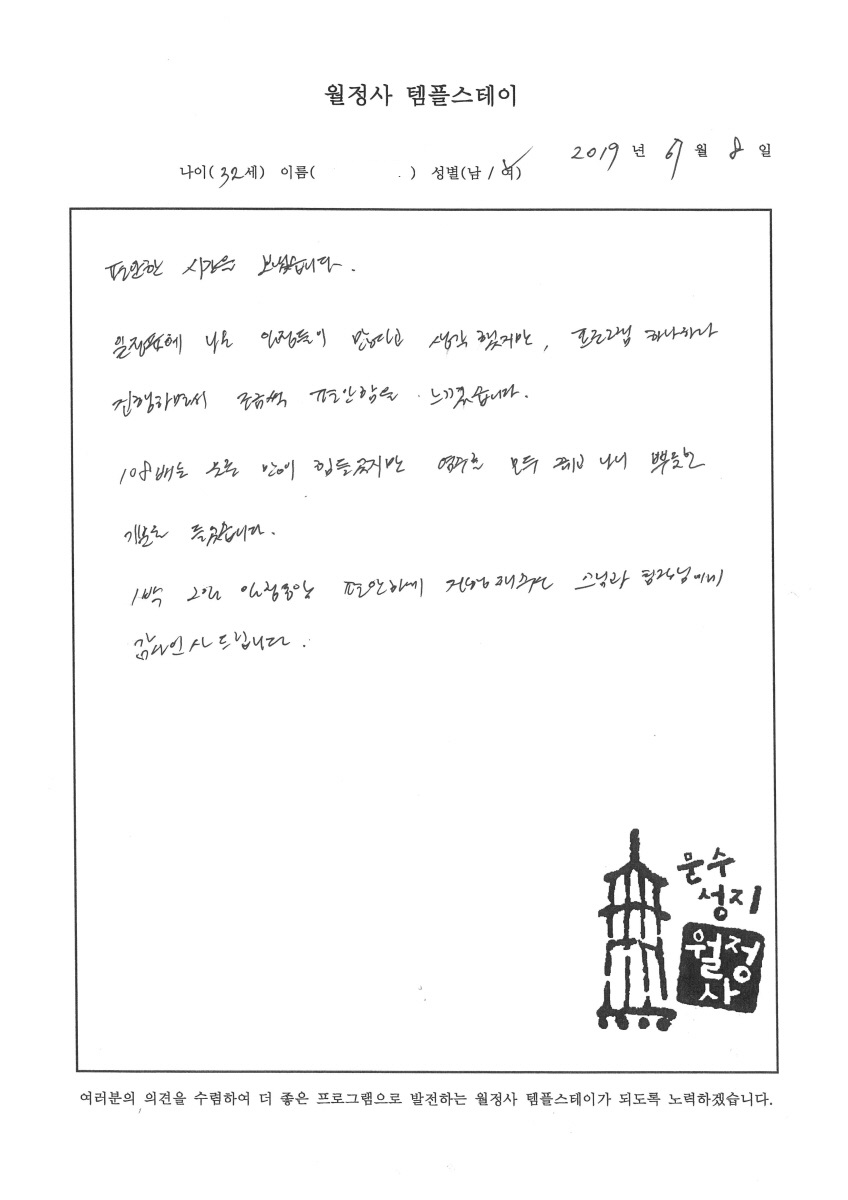 월정사 템플스테이
2019 년 6월 8 일
나이(32세) 이름( ) 성별(남/여)
편안한 시간을 보냈습니다.
일정표에 나온 일정들이 많다고 생각했지만, 프로그램 하나하나
진행하면서 조금씩 편안함을 느꼈습니다.
108배는 많이 힘들었지만 염주를 모두 꿰고 나니 뿌듯한
기분을 들었습니다.
1박 2일 일정동안 편안하게 진행해주신 스님과 팀장님에게
감사인사드립니다.
문수
성지
월정
사
여러분의 의견을 수렴하여 더 좋은 프로그램으로 발전하는 월정사 템플스테이가 되도록 노력하겠습니다.